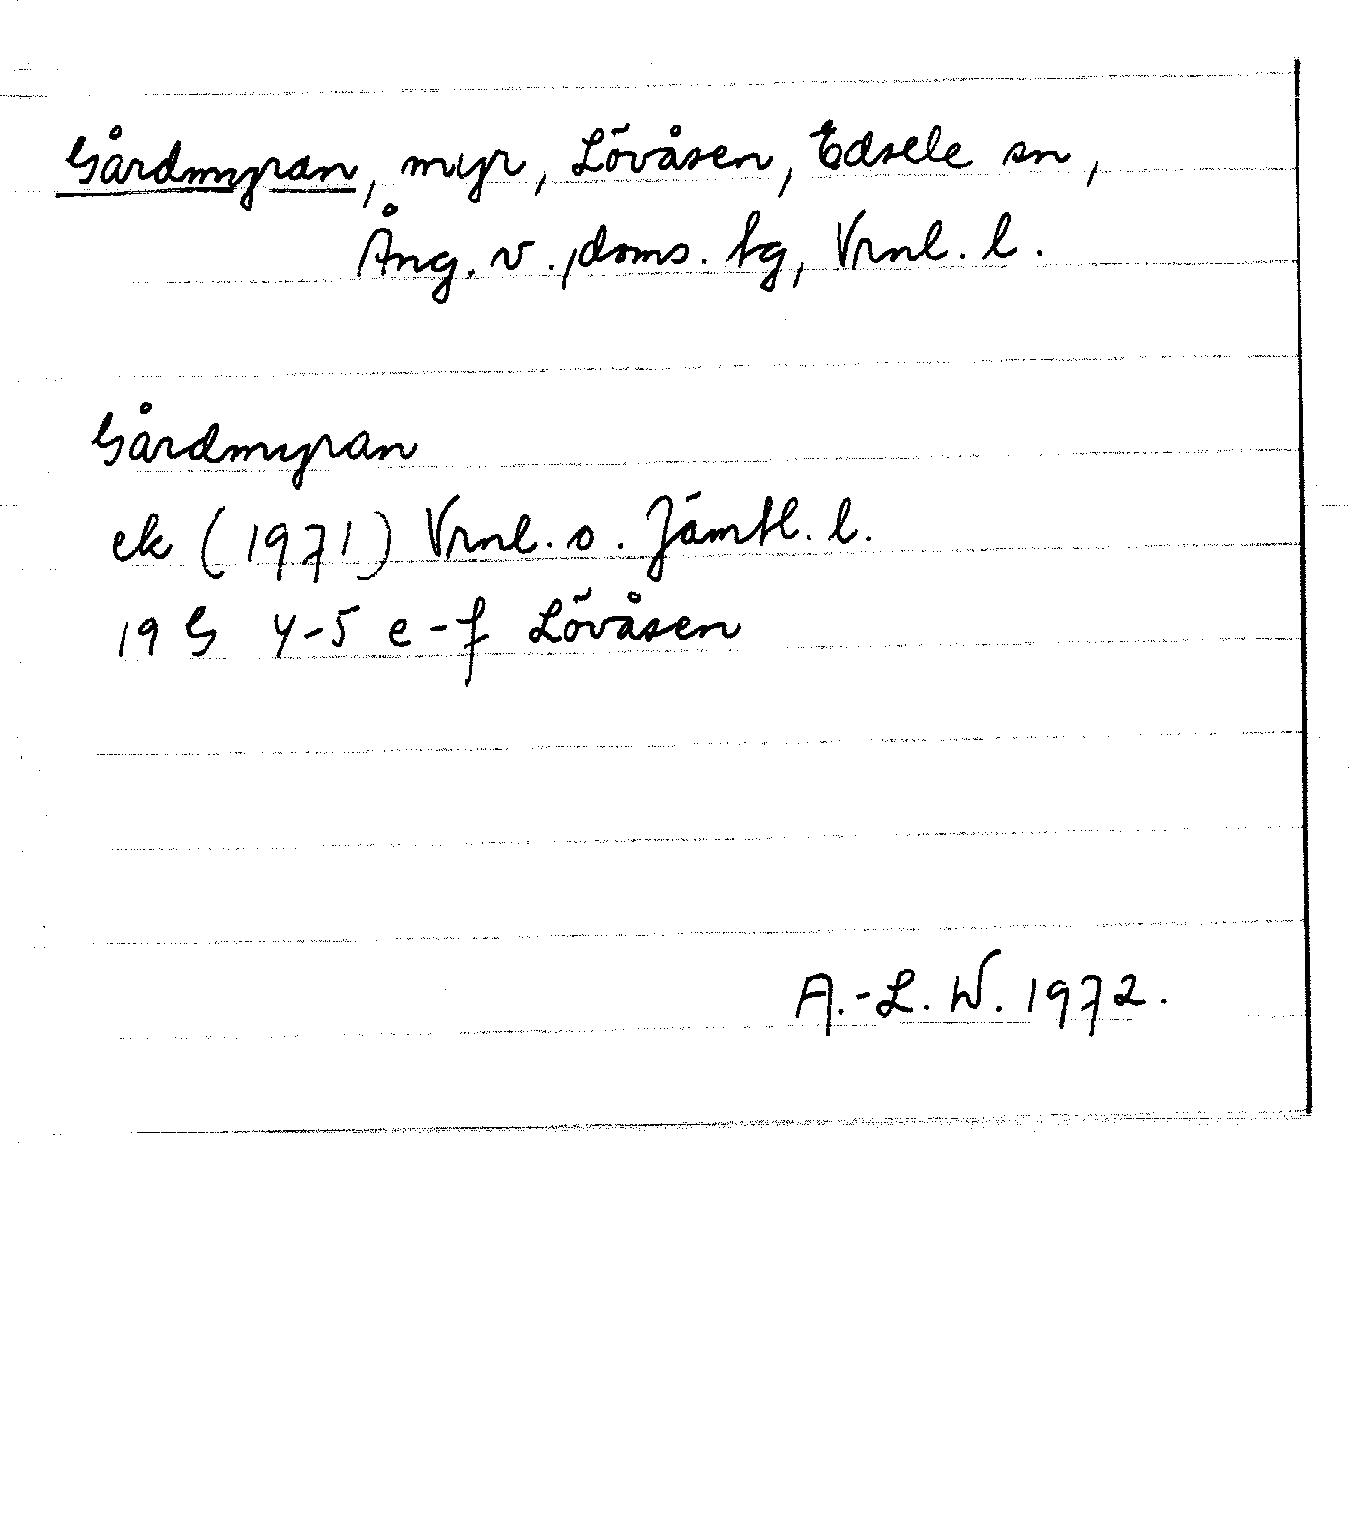 Gårdmyran, myr, Lövåsen, Edsele sn,
Ång. v. doms. tg, Vrnl. l.
Gårdmyran
ek (1971) Vrnl. o. Jämtl. l.
19 G 4-5 e-f Lövåsen
A.-L. W. 1972.